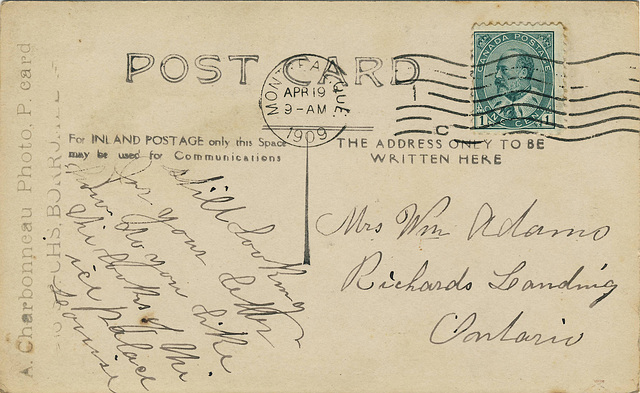 POST CARD
MONTREAL, QUE.
APR 19
9-AM
1909
CANADA POSTAGE
1 ONE CENT 1
For INLAND POSTAGE only this Space
may be used for Communications
THE ADDRESS ONLY TO BE
WRITTEN HERE
A. Charbonneau Photo. P. card
still looking
for your letter
how do you like
the looks of the
ice palace
Mrs Wm Adams
Richards Landing
Ontario